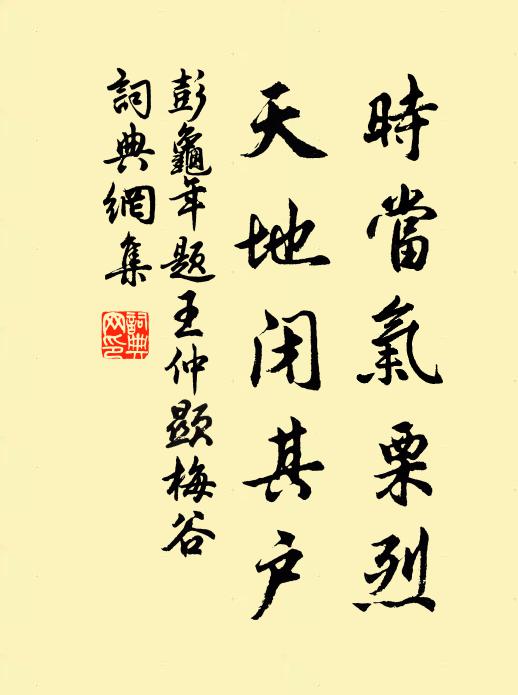 時當氣栗烈
天地閉其户
彭龜年題王仲顯梅谷
詞典網集
詞典網印